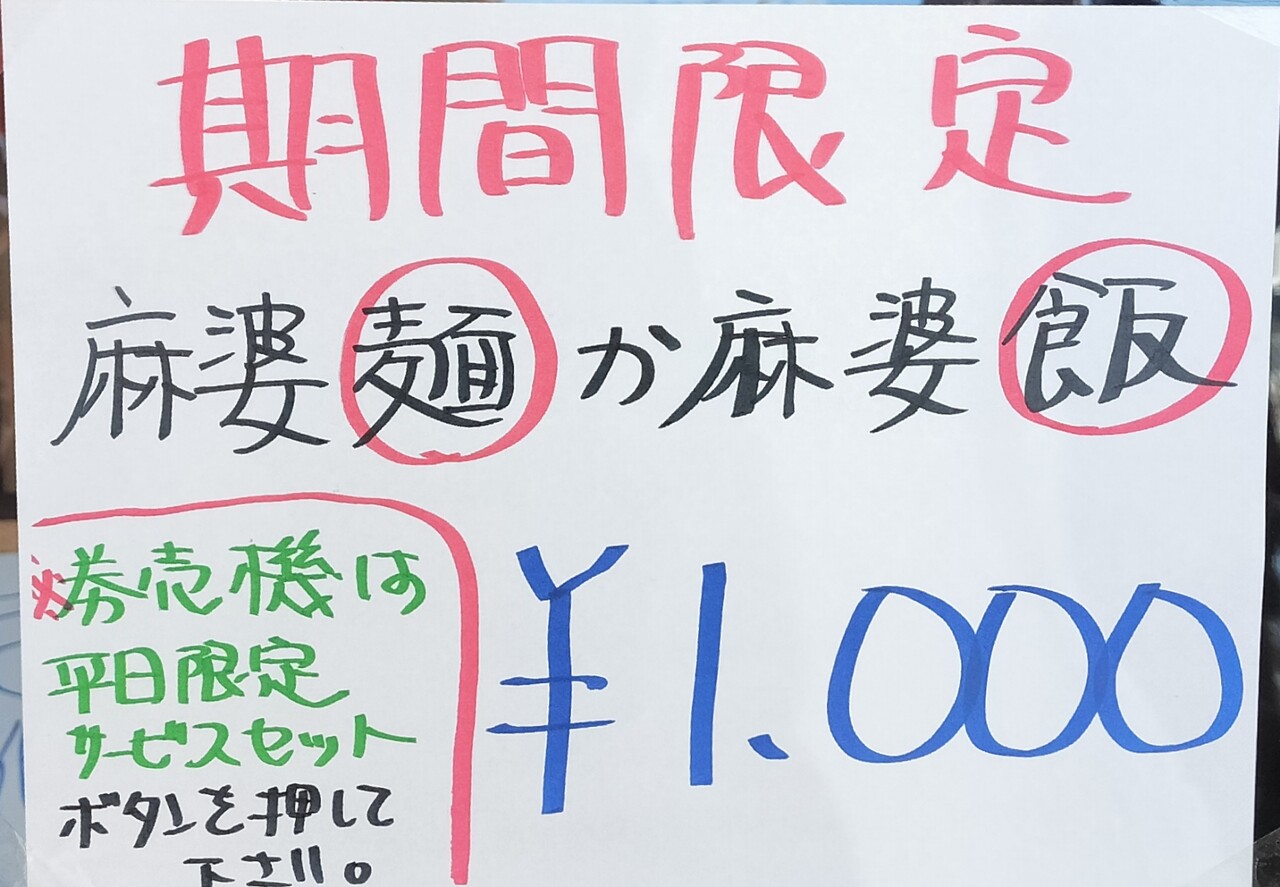 期間限定
麻婆麺か麻婆飯
※券売機は
平日限定
サービスセット
ボタンを押して
下さい。
¥1.000